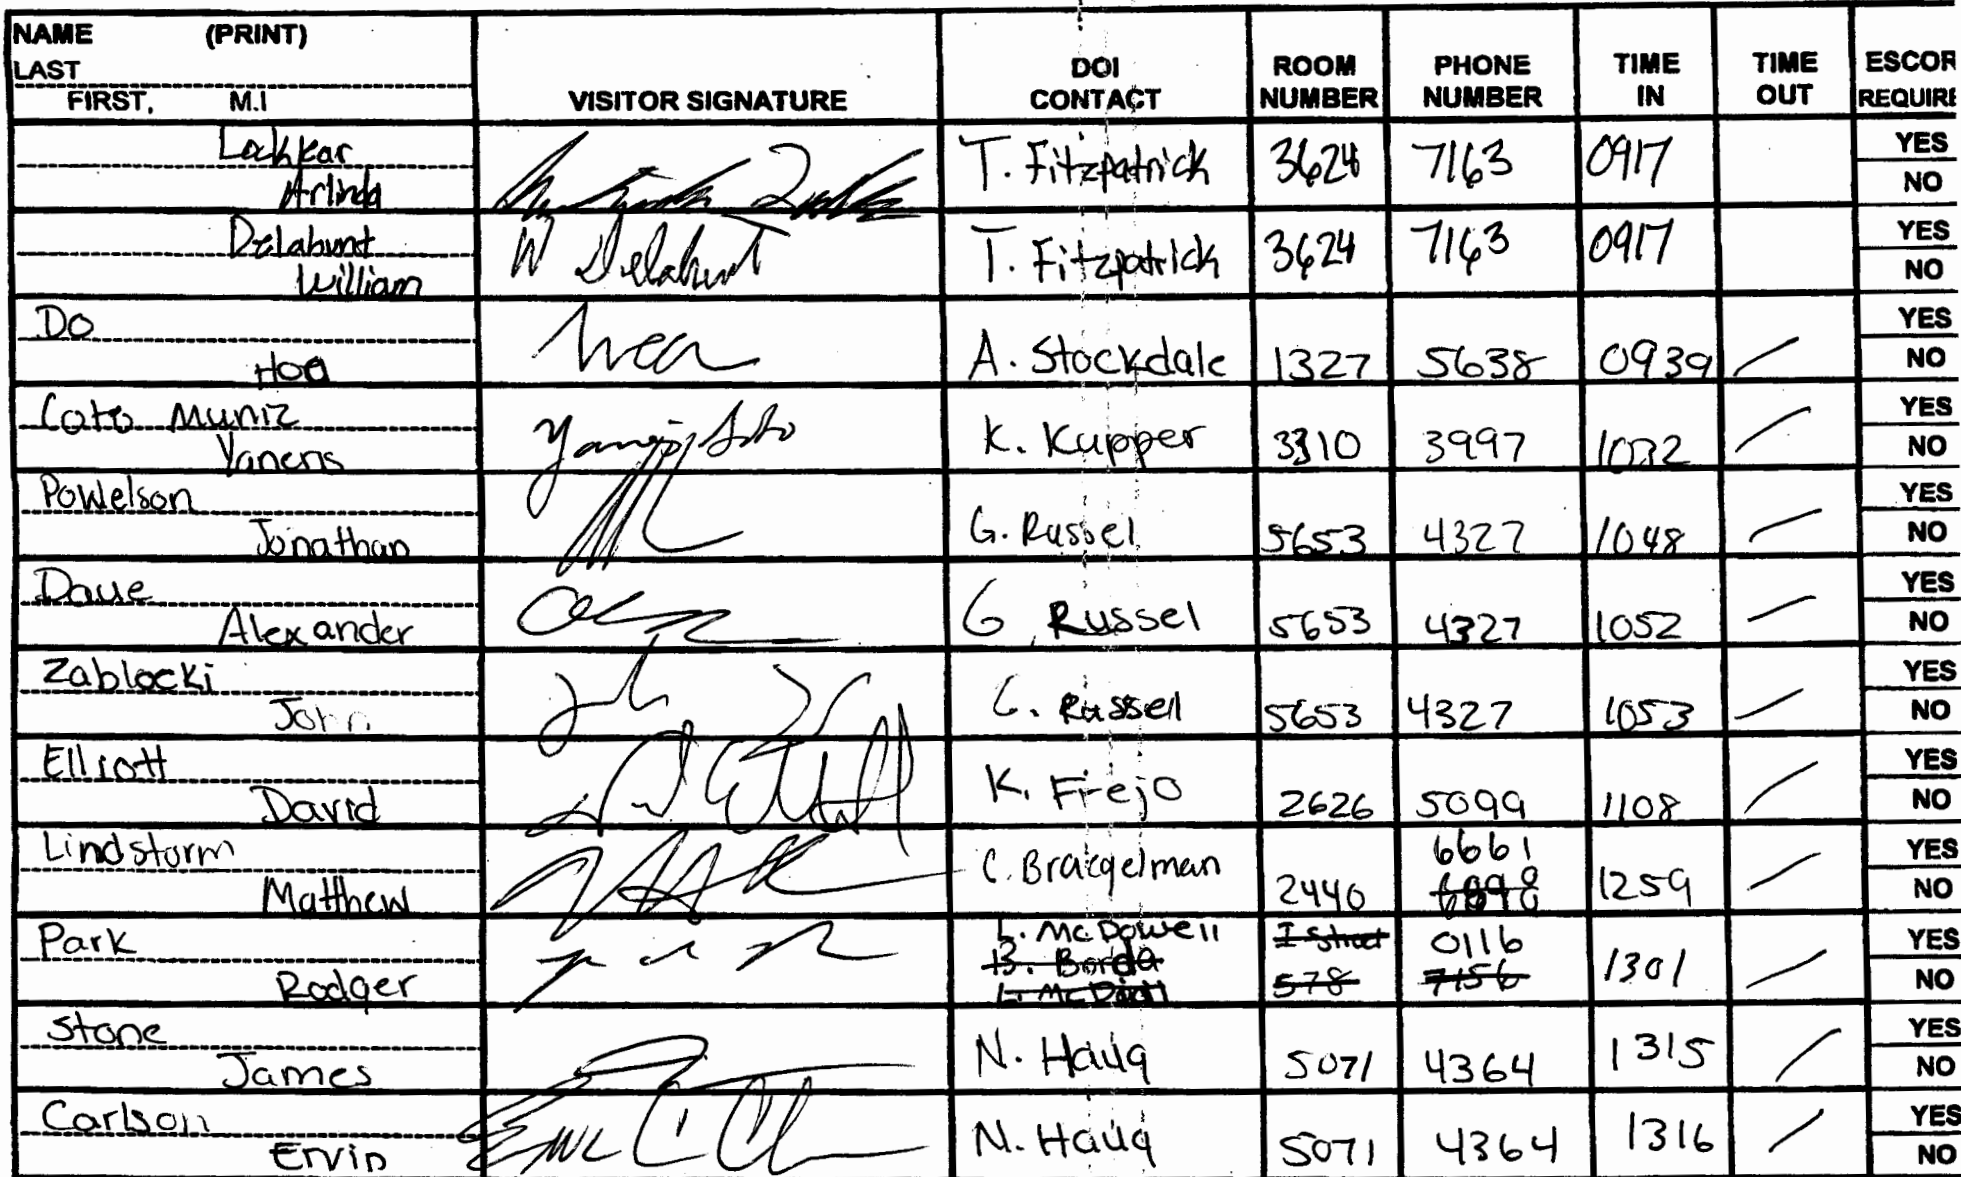 NAME (PRINT)
LAST
FIRST, M.I
VISITOR SIGNATURE
DOI CONTACT
ROOM NUMBER
PHONE NUMBER
TIME IN
TIME OUT
ESCOR
REQUIRE
Lachkar
Arlinda
T. Fitzpatrick 3624 7163 0917
YES
NO
Delahunt
William
W Delahunt
T. Fitzpatrick 3624 7163 0917
YES
NO
Do
Hoa
A. Stockdale 1327 5638 0939
YES
NO
Coto Muniz
Yaneris
K. Kupper 3310 3997 1032
YES
NO
Powelson
Jonathan
G. Russel 5653 4327 1048
YES
NO
Daue
Alexander
G Russel 5653 4327 1052
YES
NO
Zablocki
John
G. Russell 5653 4327 1053
YES
NO
Elliott
David
K. Frejo 2626 5099 1108
YES
NO
Lindstorm
Matthew
C. Bracgelman 2440 6661 1259
YES
NO
Park
Rodger
L. McDowell
B. Borda
I Street
578
0116
7156
1301
YES
NO
Stone
James
N. Haug 5071 4364 1315
YES
NO
Carlson
Ervin
N. Haug 5071 4364 1316
YES
NO